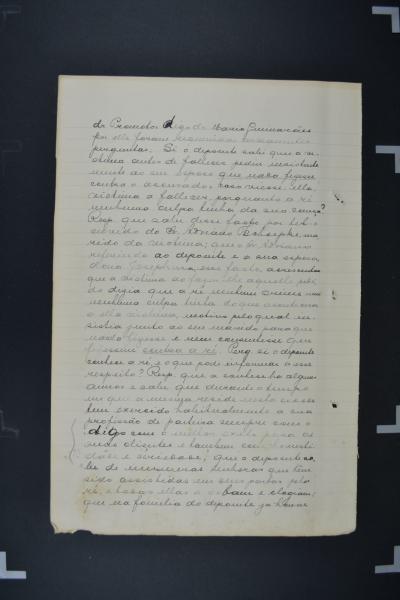 do Promotor digo do Mario Guimarães
por elle foram
perguntas: Si o depoente sabe que a vi-
ctima antes de fallecer pediu insistente
mente ao seu esposo que nada fizesse
contra o accusada caso viesse ella,
victima a fallecer porquanto a ré
nenhuma culpa tinha da sua
Resp. que sabe desse facto por ter
ouvido do Sr. Adriano ma
rido da victima; que o Sr. Adriano
referindo ao depoente e a sua esposa,
dona esse facto, accrescentou
que a victima ao fazer-lhe aquelle pedi
do dizia que a ré nenhum crime nem
nenhuma culpa tinha do que acontecera
a ella victima, motivo pelo qual in
sistia junto ao seu marido para que
nada fizesse e nem consentisse que
fizessem contra a ré. Perg. si o depoente
conhece a ré, e o que pode informar a seu
respeito? Resp. que a conhece ha alguns
annos e sabe que durante o tempo
em que a mesma reside nesta cidade
tem exercido habitualmente a sua
profissão de parteira sempre com o
digo com o para as
suas clientes e tambem com
e que o depoente sa-
be de innumeras senhoras que tem
sido assistidas em seus partos pela
ré, e todas ellas a gabam e elogiam;
que na familia do depoente ja houve